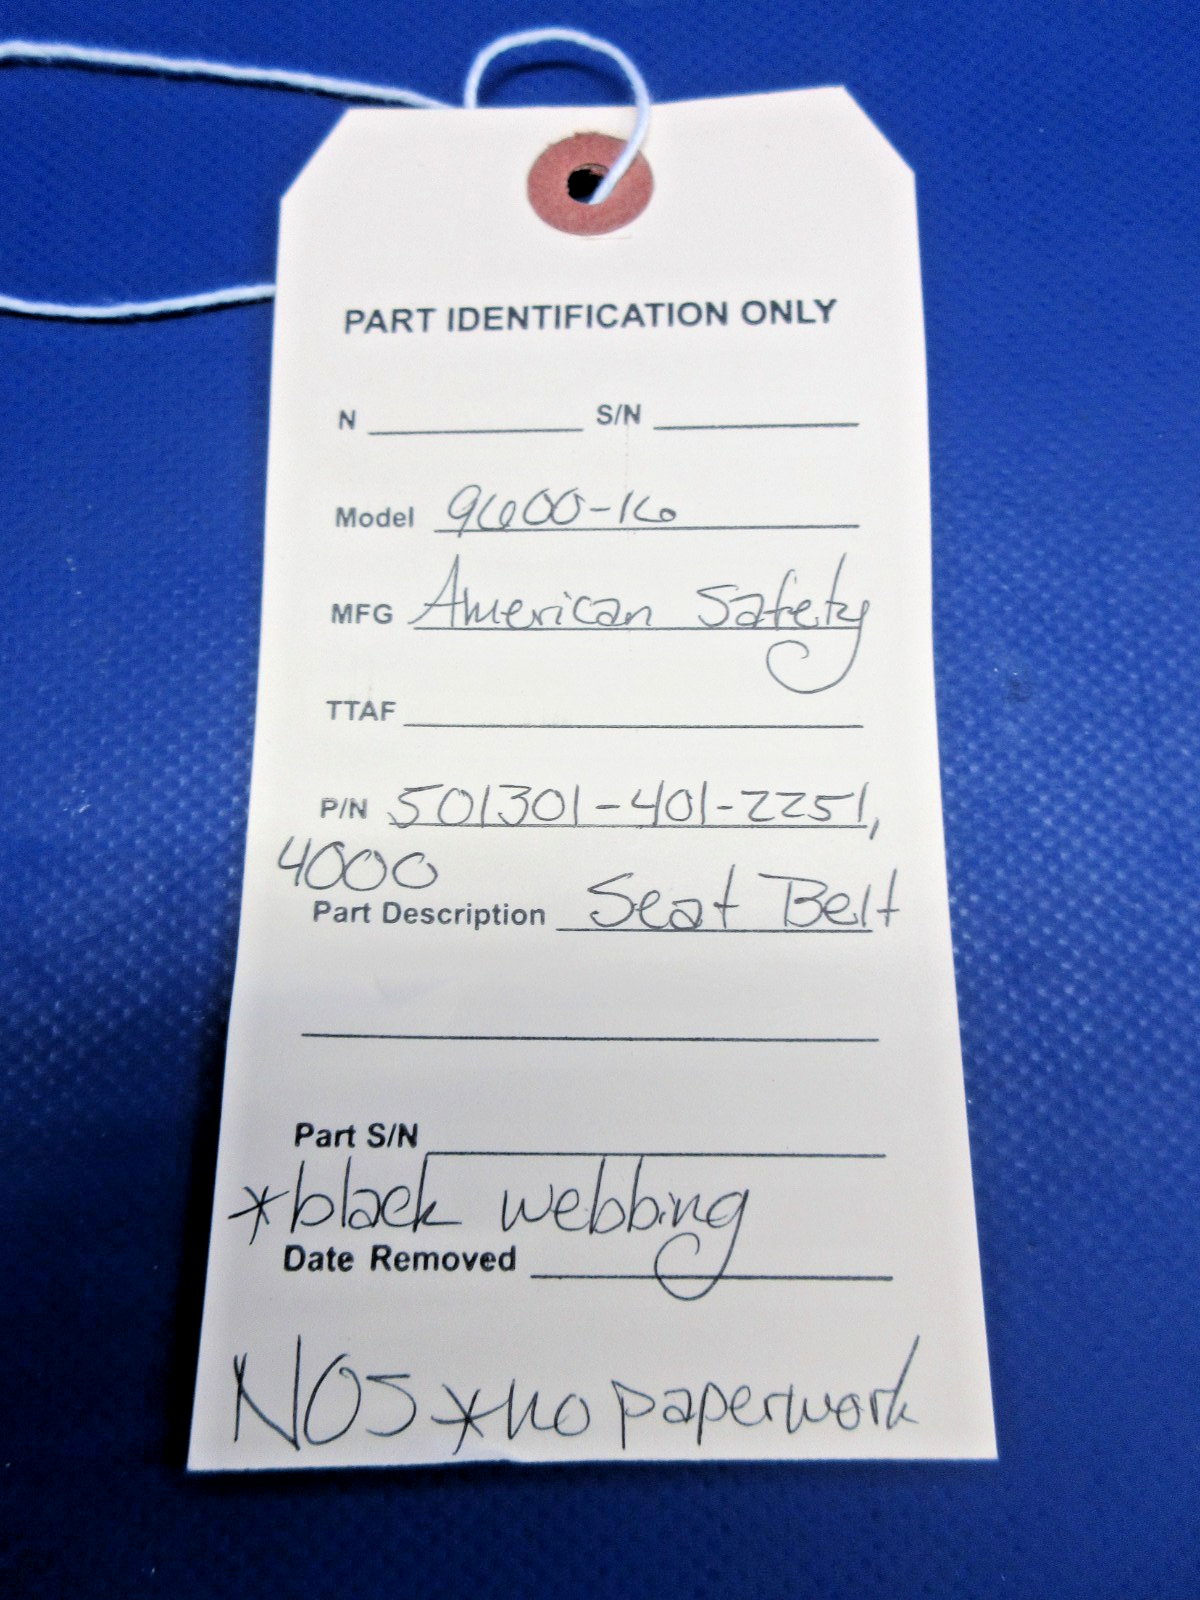 PART IDENTIFICATION ONLY
N S/N
Model 9600-16
MFG American Safety
TTAF
P/N 501301-401-2251,
4000
Part Description Seat Belt
Part S/N
*black webbing
Date Removed
NOS *no paperwork